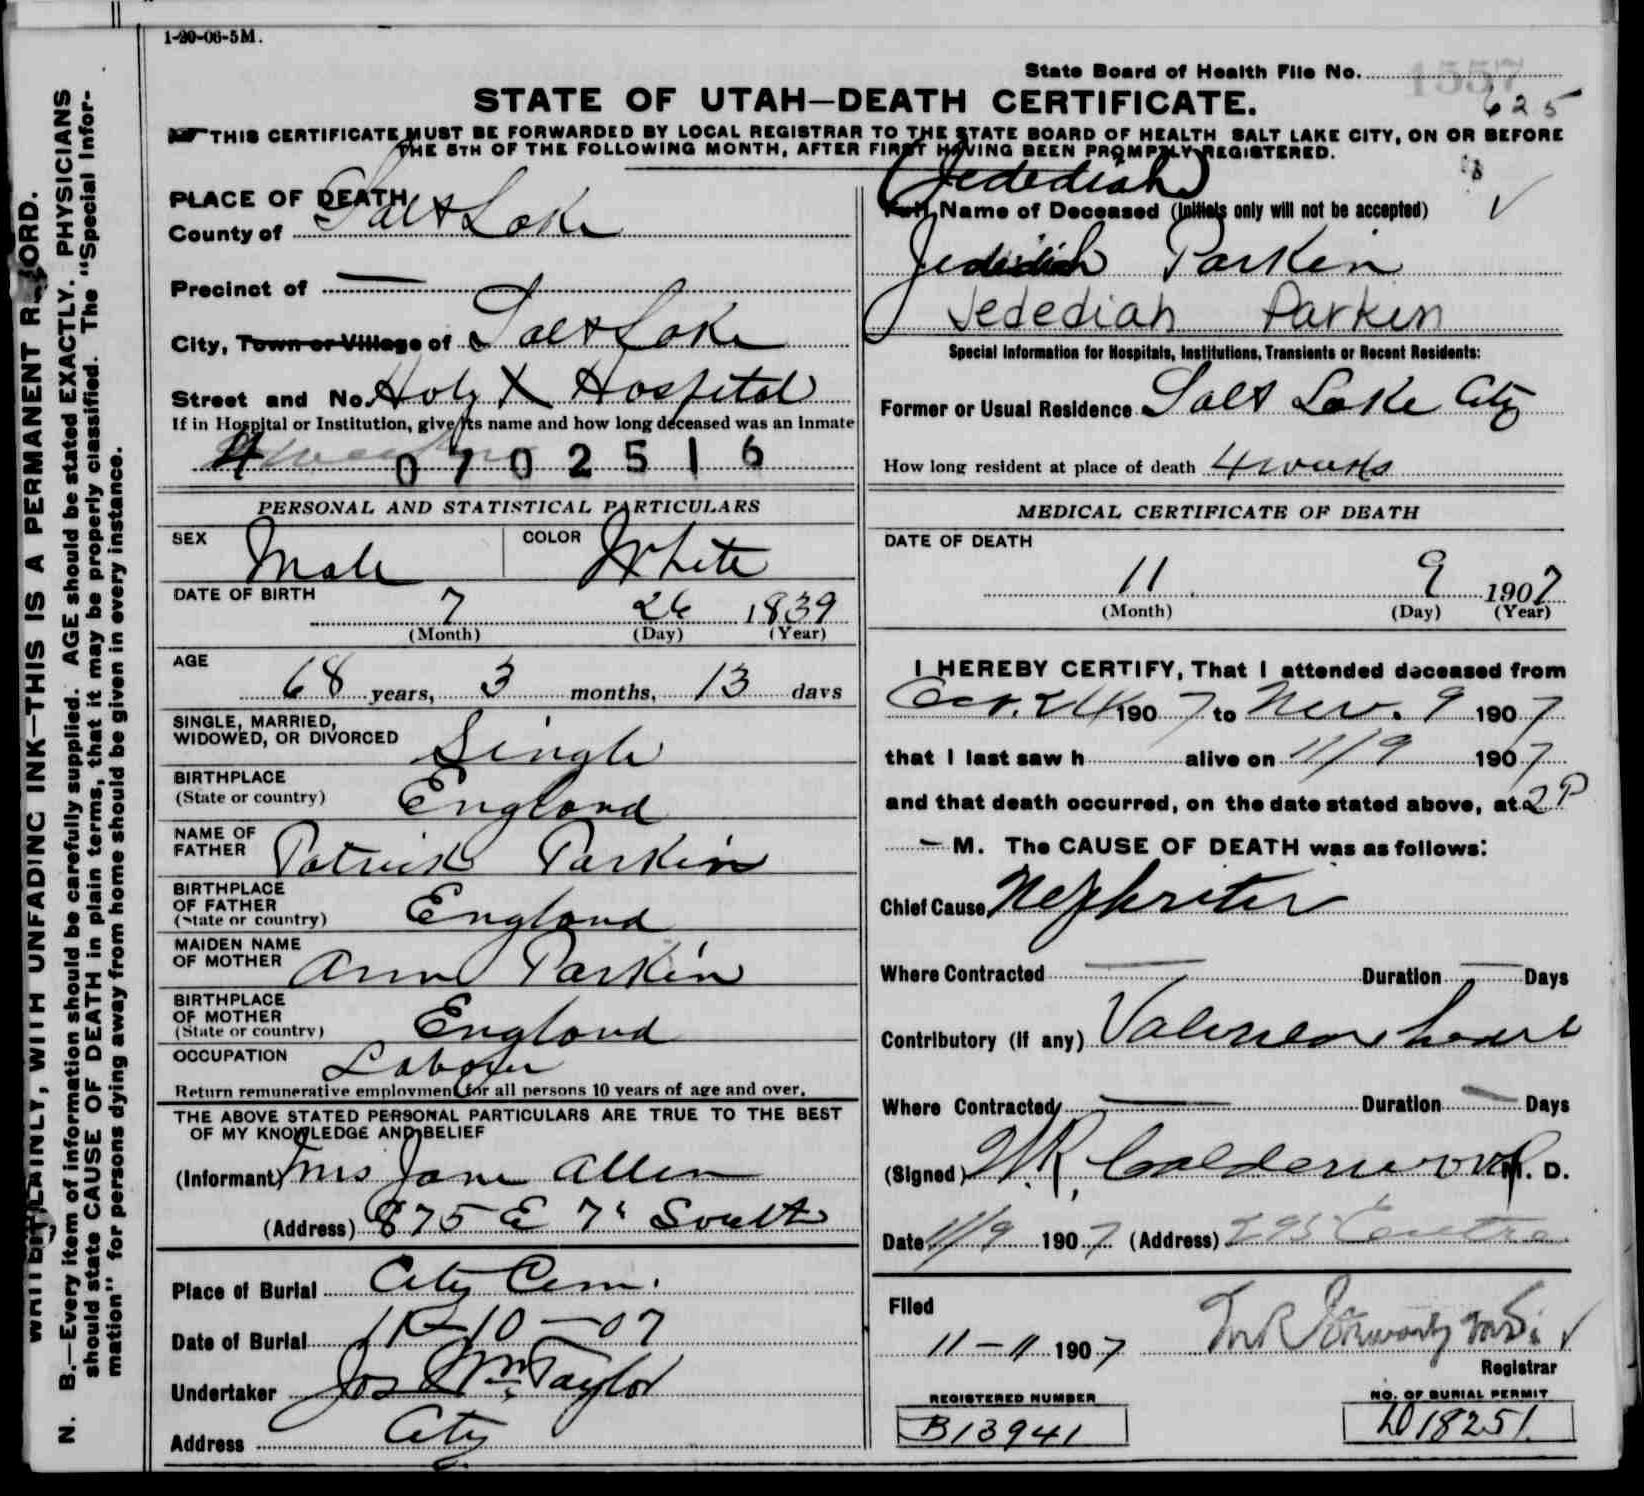 1-20-06-5M.
State Board of Health File No. 1557
625
STATE OF UTAH—DEATH CERTIFICATE.
THIS CERTIFICATE MUST BE FORWARDED BY LOCAL REGISTRAR TO THE STATE BOARD OF HEALTH SALT LAKE CITY, ON OR BEFORE
THE 5TH OF THE FOLLOWING MONTH, AFTER FIRST HAVING BEEN PROMPTLY REGISTERED.
PLACE OF DEATH
County of Salt Lake
Precinct of —
City, Town or Village of Salt Lake
Street and No. Holy X Hospital
If in Hospital or Institution, give its name and how long deceased was an inmate
4 weeks 0702516
PERSONAL AND STATISTICAL PARTICULARS
SEX Male COLOR White
DATE OF BIRTH
7 26 1839
(Month) (Day) (Year)
AGE
68 years, 3 months, 13 days
SINGLE, MARRIED,
WIDOWED, OR DIVORCED Single
BIRTHPLACE
(State or country) England
NAME OF
FATHER Patrick Parkin
BIRTHPLACE
OF FATHER
(State or country) England
MAIDEN NAME
OF MOTHER Ann Parkin
BIRTHPLACE
OF MOTHER
(State or country) England
OCCUPATION Laborer
Return remunerative employment for all persons 10 years of age and over.
THE ABOVE STATED PERSONAL PARTICULARS ARE TRUE TO THE BEST
OF MY KNOWLEDGE AND BELIEF
(Informant) Mrs Jane Allen
(Address) 875 E 7" South
Place of Burial City Cem.
Date of Burial 11-10-07
Undertaker Jos Wm Taylor
Address City
(Jedediah)
Full Name of Deceased (Initials only will not be accepted)
Jedediah Parkin
Jedediah Parkin
Special Information for Hospitals, Institutions, Transients or Recent Residents:
Former or Usual Residence Salt Lake City
How long resident at place of death 4 weeks
MEDICAL CERTIFICATE OF DEATH
DATE OF DEATH
11 9 1907
(Month) (Day) (Year)
I HEREBY CERTIFY, That I attended deceased from
Oct. 24 1907 to Nov. 9 1907
that I last saw h alive on 11/9 1907
and that death occurred, on the date stated above, at 2 P
— M. The CAUSE OF DEATH was as follows:
Chief Cause Nephritis
Where Contracted — Duration — Days
Contributory (if any) Valvular heart
Where Contracted — Duration — Days
(Signed) W.R. Calderwood M. D.
Date 11/9 1907 (Address) 295 Center
Filed
11-11 1907
Registrar
REGISTERED NUMBER
B13941
NO. OF BURIAL PERMIT
D18251
WRITE PLAINLY, WITH UNFADING INK—THIS IS A PERMANENT RECORD.
N. B.—Every item of information should be carefully supplied. AGE should be stated EXACTLY. PHYSICIANS
should state CAUSE OF DEATH in plain terms, that it may be properly classified. The "Special Infor-
mation" for persons dying away from home should be given in every instance.